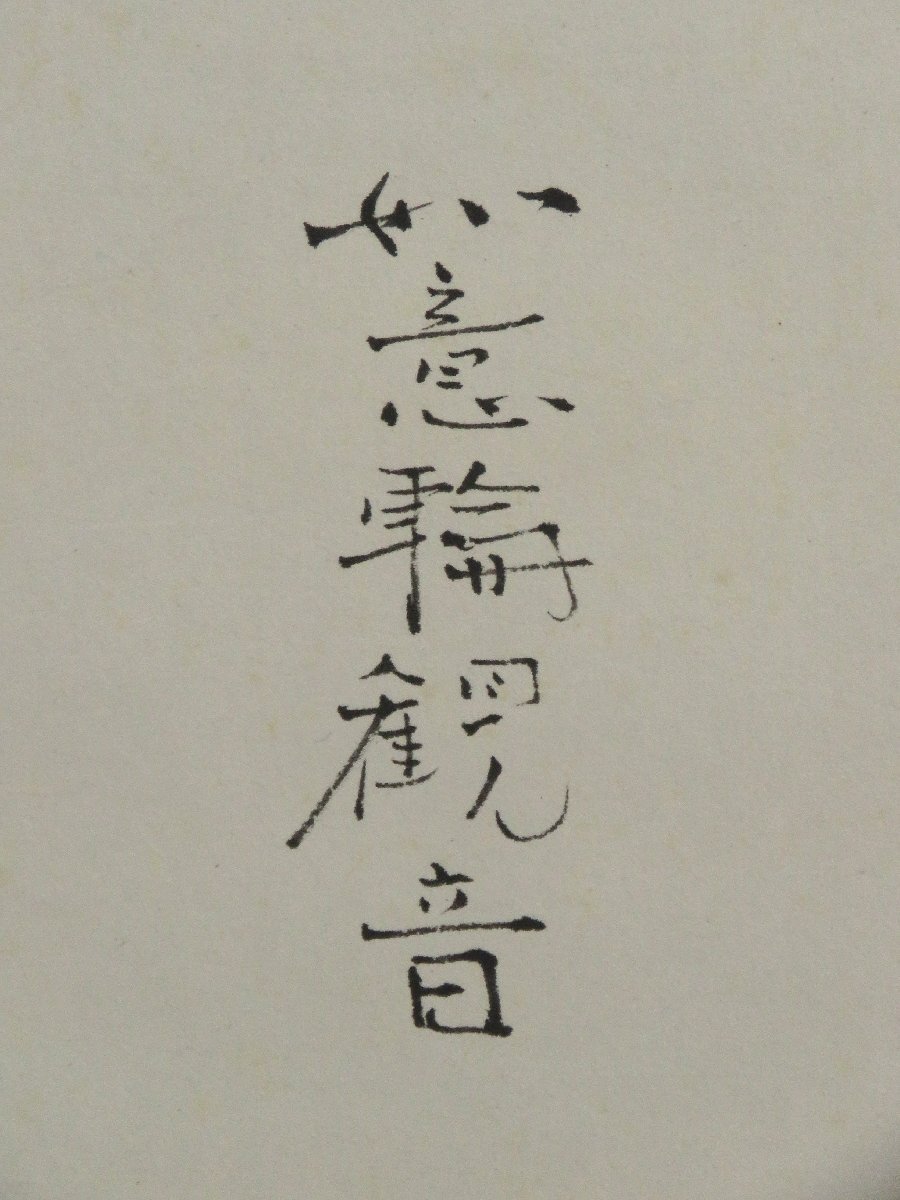 如意輪観音